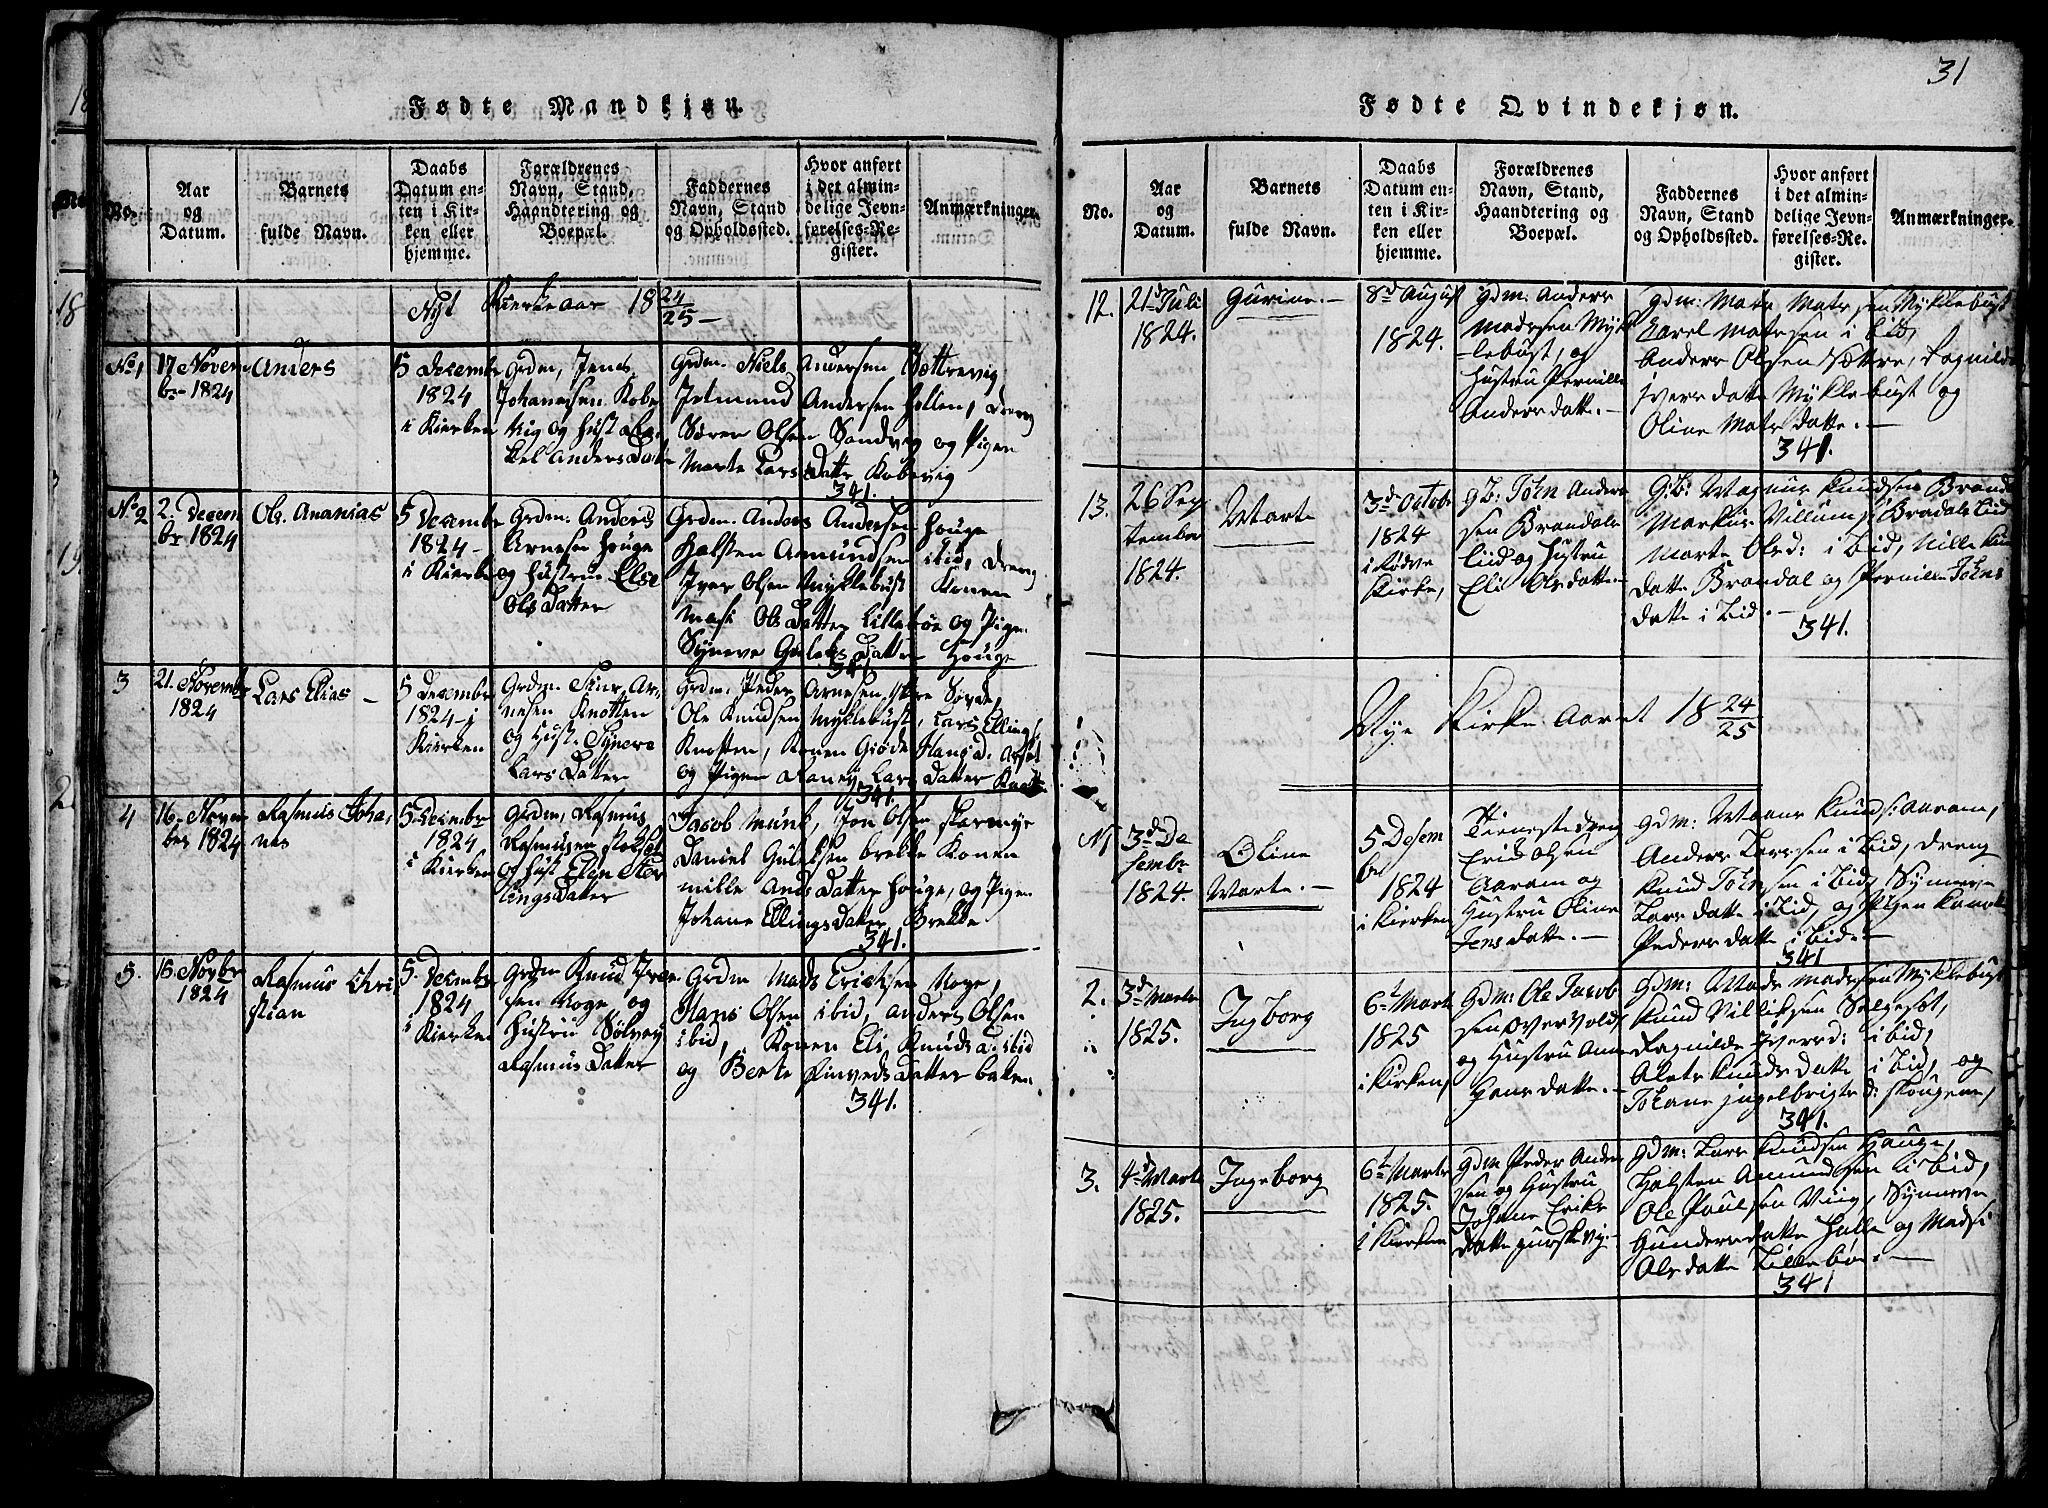 Fødte Mandkjøn.
No.
Aar
og
Datum.
Barnets
fulde Navn.
Daabs
Datum en-
ten i Kir-
ken eller
hjemme.
Forældrenes
Navn, Stand,
Haandtering og
Boepæl.
Faddernes
Navn, Stand
og Opholdssted.
Hvor anført
i det almin-
delige Jevn-
førelses-Re-
gister.
Anmærkninger.
Nyt Kierkeaar 18 24/25 —
No 1
17 Novem-
br 1824
Anders
5 Decembr
1824
i Kierken
Grdm, Jens
Johanesen Kobe-
vig og Hust
Andersdatter
Grdm. Niels Andersen Sættrevig
Andersen Hollen, Dreng
Søren Olsen Sandvig og Pigen
Marte Larsdatter Kobevig
341.
No 2
2. Decem
br 1824
Ole Ananias
5 Decembr
1824 –
i Kierken
Grdm. Anders
Arnesen Houge
og Hustru Else
Olsdatter
Grdm. Anders Andersen Houge
Halsten Amundsen ibid, Dreng
Iver Olsen Myklebust Konen
Olsdatter Lillebøe og Pige
Syneve Datter Houge
341
3
21. Novembr
1824
Lars Elias –
5 Decembr
1824 – i
Kierken
Grdm. Siur Ar-
nesen Knotten
og Hust. Syneve
Larsdatter
Grdm. Peder Arnesen, Søvde,
Ole Knudsen Myklebust, Lars Elling
Knotten, Konen Giøde Hansd. Aarset
og Pigen Larsdatter
341.
4
16. Novem
ber 1824
Rasmus Joha,
nes
5 Decembr
1824
i Kierken
Grdm, Rasmus
Rasmusen
og Hust Elen
lingsdatter
Jacob Munk, Jon Olsen
Daniel Brekke Konen
Mille Andsdatter Houge, og Pigen
Johane Ellingsdatter Brekke
341.
5.
16 Novbr
1824
Rasmus Chri,
stian
5. Decembr
1824
i Kierken
Grdm Knud Iver-
sen Koge og
Hustru Sølvey
Rasmusdatter
Grdm Mads Ericksen Koge,
Hans Olsen ibid, Anders Olsen
ibid, Konen Eli Knudsd. ibid
og Berte datter
341.
31
Fødte Qvindekjøn.
No.
Aar
og
Datum.
Barnets
fulde Navn.
Daabs
Datum en-
ten i Kir-
ken eller
hjemme.
Forældrenes
Navn, Stand,
Haandtering og
Boepæl.
Faddernes
Navn, Stand
og Opholdssted.
Hvor anført
i det almin-
delige Jevn-
førelses-Re-
gister.
Anmærkninger.
12.
21d Juli
1824.
Gurine. –
8d August
1824.
Gdm: Anders
Madsen Myk-
lebust, og
Hustru Pernille
Andersdatt. –
Gdm: Mats Matsen Myklebust
Karel Matsen i bid,
Anders Olsen Sættre, Ragnilde
Iversdatte Myklebust og
Oline Matsdatte. –
341.
13.
26 Sep
tember
1824.
Marte
3d Octobr
1824
i Rødve
Kirke,
Gb: Jøhn Ander-
sen Brandals-
liid og Hustru
Eli Olsdatte. –
G:b: Magnus Knudsen Brandal
Markus Villums: Bradalsliid
Marte Olsd: i bid, Mille
datte Brandal og Pernille Jøhns
datte i bid. –
341.
Nye Kirke-Aaret 18 24/25
N1
3d De
sembr
1824.
Oline
Marte. –
5 Desem
br
1824
i Kierken
Tienestedreng
Erik Olsen
Aaram og
Hustru Oline
Jensdatte. –
Gdm: Knuds: Aaram,
Anders Larssen i bid, Dreng
Knud Jøhnsen i bid, Synneve
Larsdatte i bid, og Pigen
Pedersdatte i bid. –
341
2.
3d Marts
1825.
Ingborg
6t Marts
1825
i Kierken,
Gdm: Ole Jacob
sen Overvold,
og Hustru Anne
Hansdatte. –
Gdm: Mads Madssen Myklebust
Knud Villiksen
Ragnilde Iversd: i bid,
Knudsdatte i bid, og
Jøhane Ingelbrigts d:
341.
3.
4d Marts
1825.
Ingeborg
6t Marts
1825.
i Kierken
Gdm Peder Ander
sen og Hustru
Johane Eriks
datte Gurskevig. –
Gdm: Lars Knudsen Hauge,
Halsten Amundsen i bid,
Ole Paulsen Vüig, Synneve
Gundersdatte Halle og Madsi
Olsdatte Lillebøe. –
341